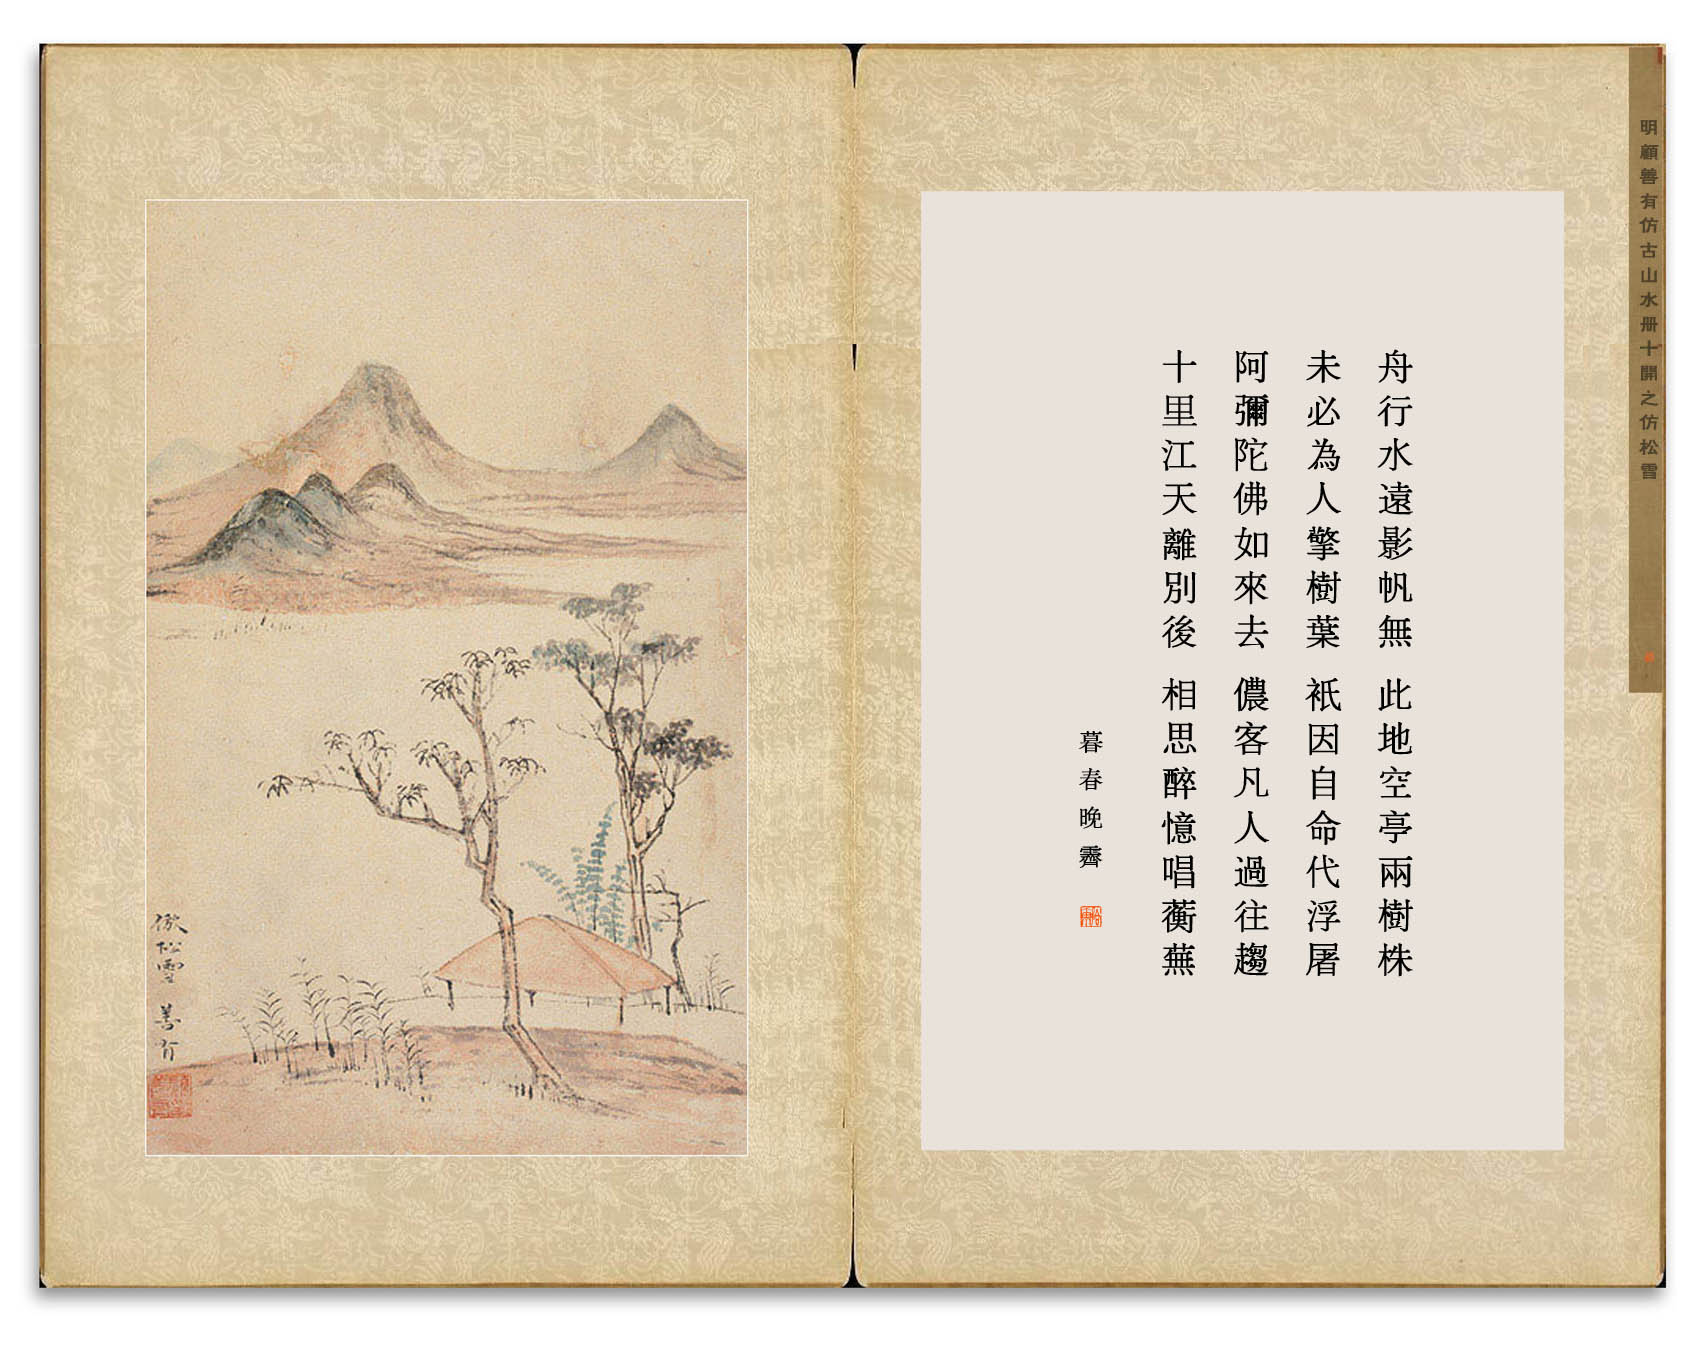 明顧善有仿古山水册十開之仿松雪
舟行水遠影帆無 此地空亭兩樹株
未必為人擎樹葉 衹因自命代浮屠
阿彌陀佛如來去 儂客凡人過往趨
十里江天離別後 相思醉憶唱蘅蕪
暮春晚霽
倣松雪 善有